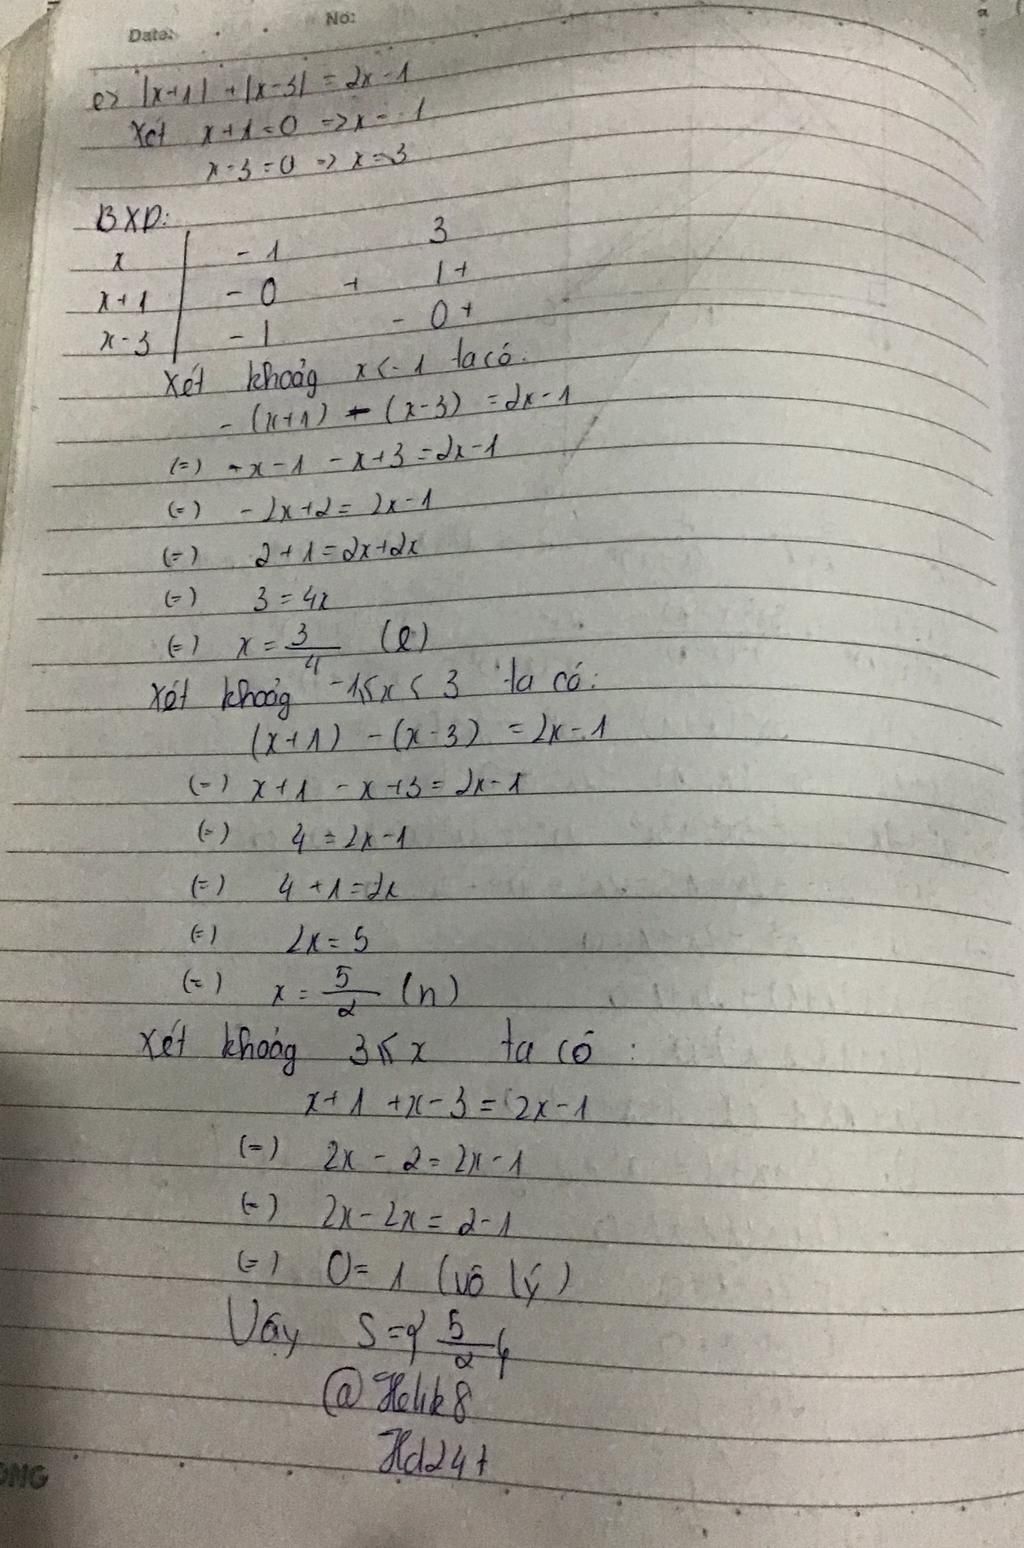 Date:
No:
e> |x+1| + |x-3| = 2x-1
Xét x+1=0 => x=-1
x-3=0 => x=3
BXD:
x -1 3
x+1 - 0 + | +
x-3 - | - 0 +
Xét khoảg x<-1 ta có.
-(x+1) - (x-3) = 2x-1
(=) -x-1 -x+3=2x-1
(=) -2x+2= 2x-1
(=) 2+1=2x+2x
(=) 3=4x
(=) x = 3/4 (l)
Xét khoảg -1≤x<3 ta có:
(x+1) -(x-3) = 2x-1
(=) x+1 -x+3=2x-1
(=) 4=2x-1
(=) 4+1=2x
(=) 2x=5
(=) x = 5/2 (n)
Xét khoảg 3≤x ta có :
x+1 +x-3= 2x-1
(=) 2x-2=2x-1
(=) 2x-2x=2-1
(=) 0=1 (vô lý)
Vậy S={5/2}
ONG